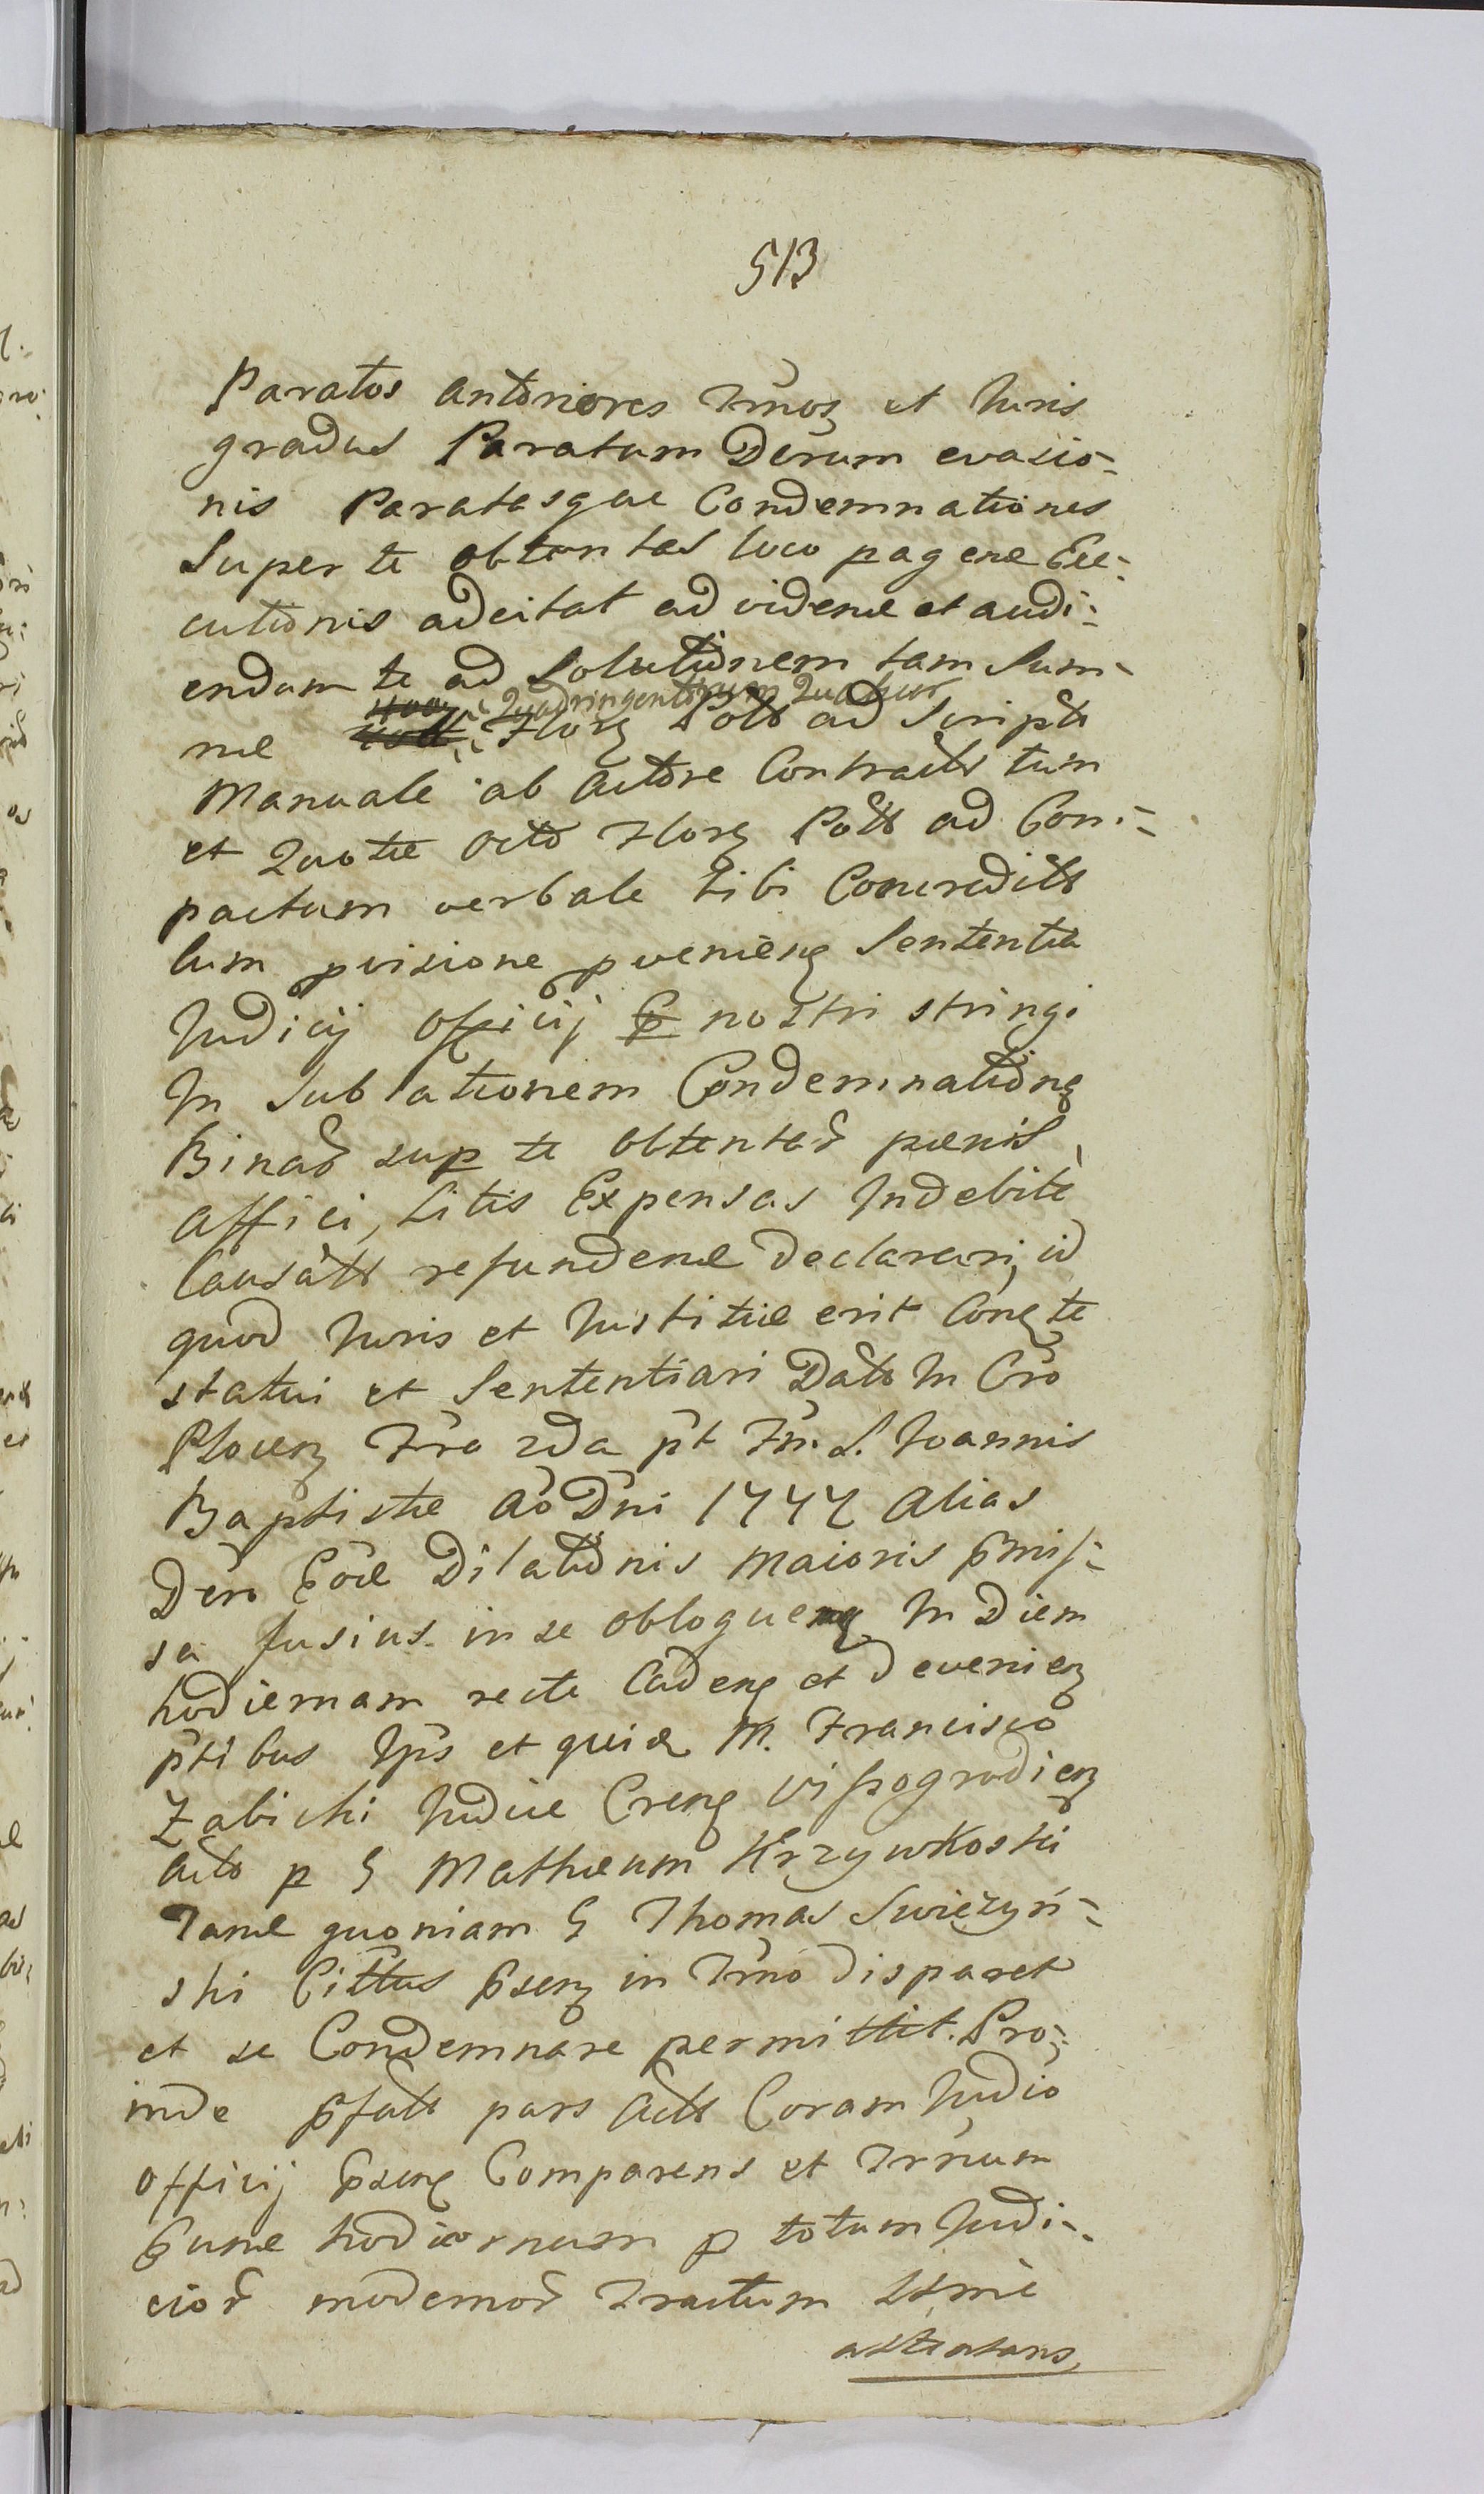 513
Paratos anteriores Trnos et Juris
gradus Paratum Derum evasio-
nis Paratasque Condemnationes
Super te obtentas loco pagenæ Exe-
cutionis adcitat ad videnæ et audi-
endum te ad Solutionem tam Sum-
Quadringentorum Quatuor
mæ Florz Poltt ad Scriptu
Manuale ab Actore Contractt tum
et Quotæ octo Florz Poltt ad Com-
pactum verbale tibi Concreditt
Cum pvisione pvenienz Sententia
Judicij officij nostri stringi
In Sublationem Condemnationz
Binas sup te obtentas pænis
affici, Litis Expensas Indebite
Causatt refundenæ declarari, id
quod Juris et Justitiæ erit Conz te
statui et Sententiari Datt In Cro
Plocenz Fra 2da pt Fm. S. Joannis
Baptistæ Ao Dni 1747 alias
Dero Eoæ Dilationis Maioris pmis-
sa fusius in se obloquenz In Diem
hodiernam recte Cadenz et devenienz
ptibus Ips et quidz M. Francisco
Zabicki Judice Crenz Wissogrodienz
Acto p G Mathæum Krzywkoski
Tamæ quoniam G Thomas Swięzyń-
ski Cittus psenz in Trno disparet
et se Condemnare permittit. Pro-
inde pfatt pars Actt Coram Judio
officij psenz Comparens et Trnum
hodiernum p totum Judi-
cior modernor Tractum Ltme
attentans